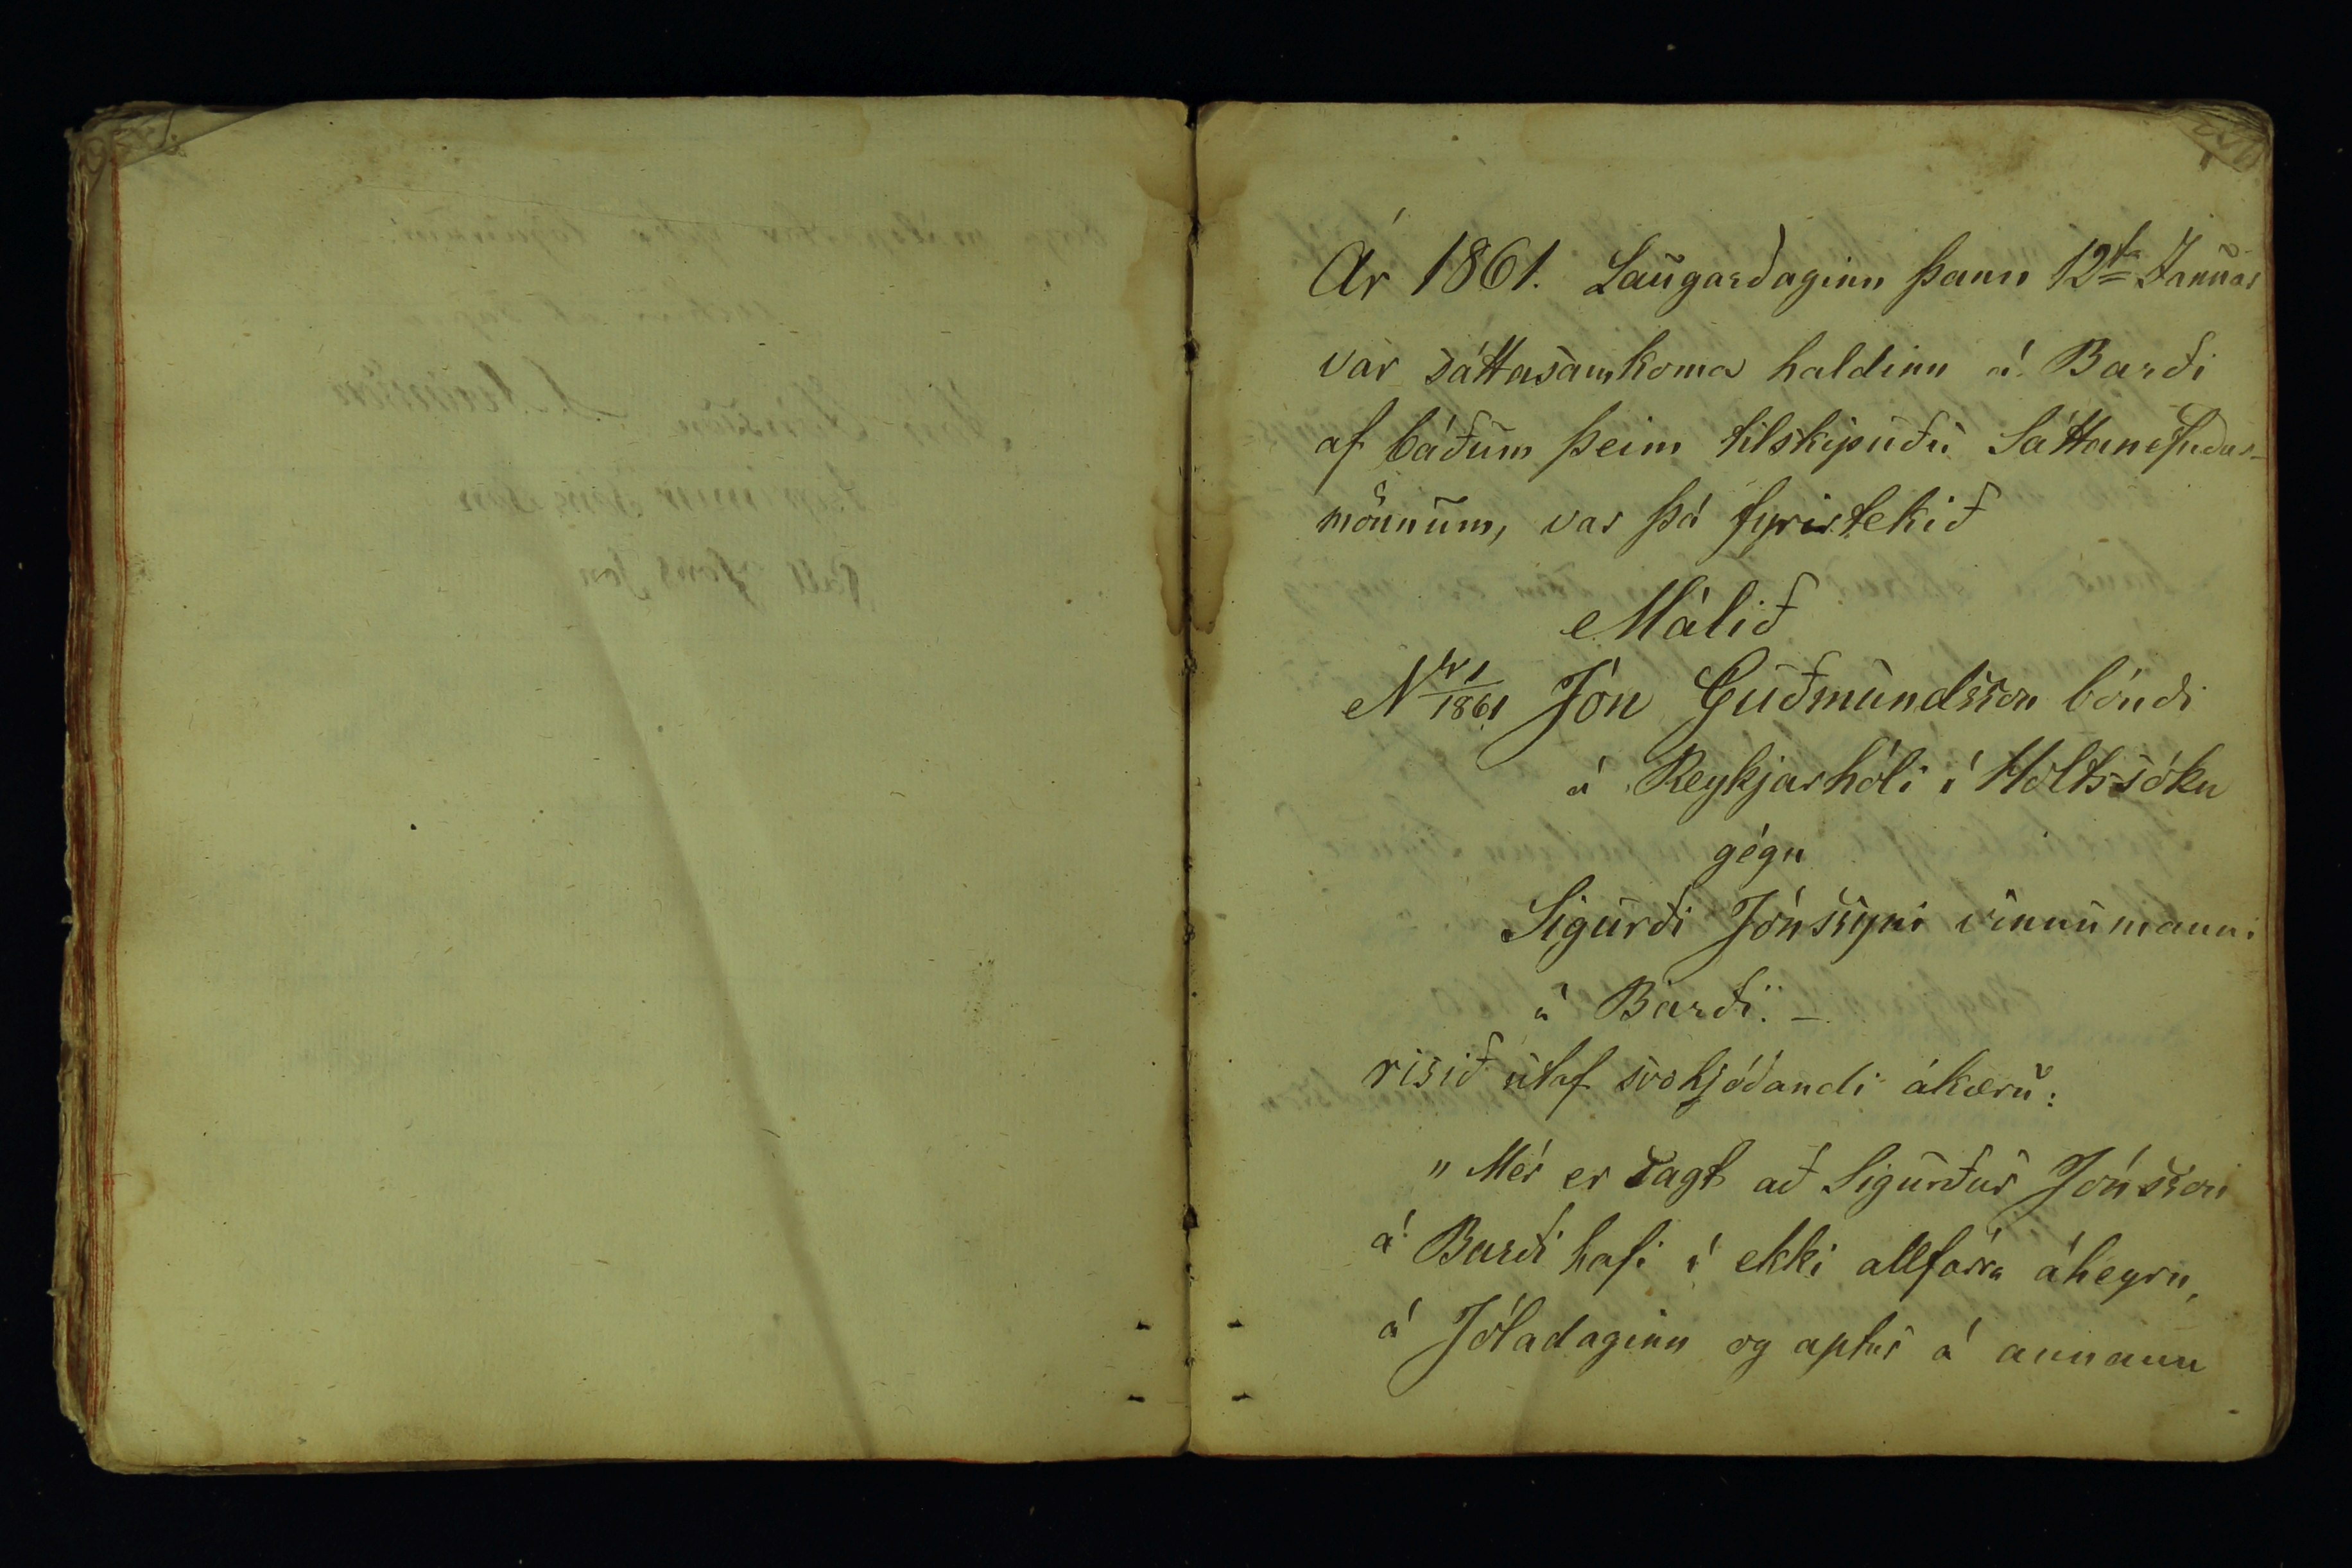 Ár 1861. Laugardaginn þann 12ta Januar
var sáttasamkoma haldinn á Barði
af báðum þeim tilskipuðu Sáttanefndar-
mönnum, var þá fyrirtekið
Málið
Nr 1/1861 Jón Guðmundsson bóndi
á Reykjarhóli í Holtssókn
gégn
Sigurði Jónssyni vinnumanni
á Barði. –
risið útaf svohljóðandi ákæru:
„Mér er sagt að Sigurður Jónsson
á Barði hafi í ekki allfárra áheyrn,
á Jóladaginn og aptur á annann